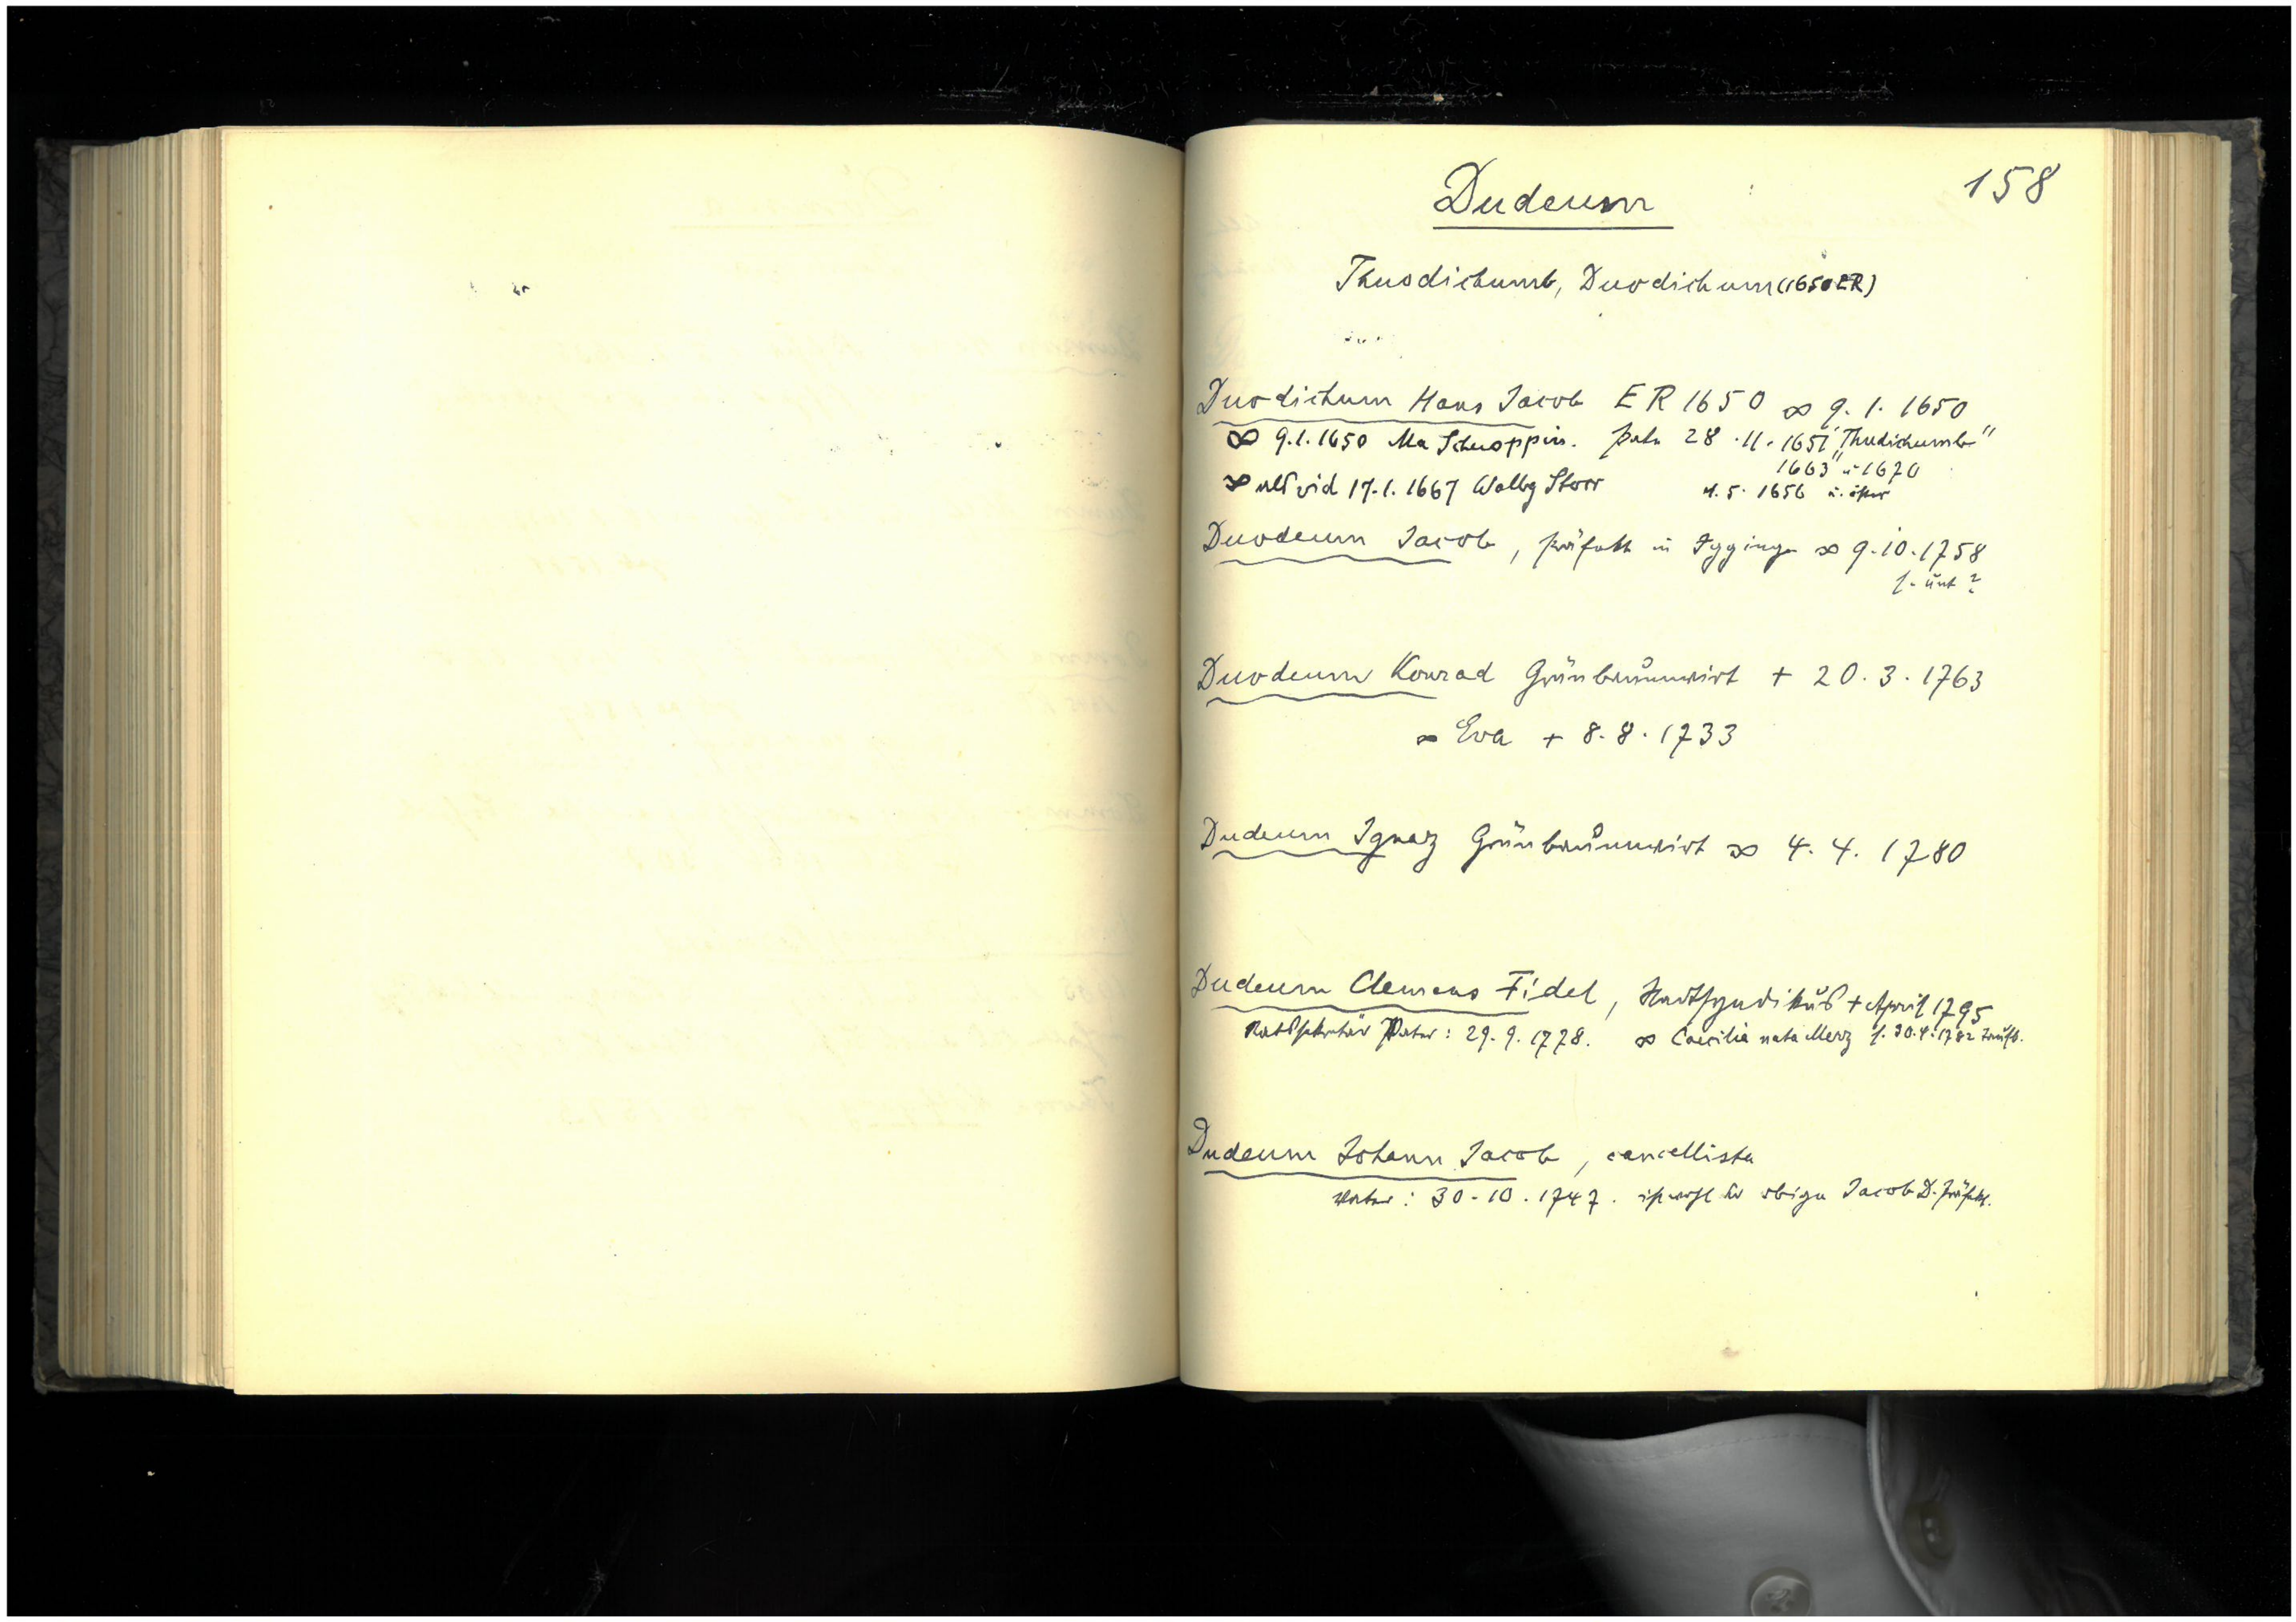 158
Dudeum
Thuodichumb, Duodichum (1650 ER)
Duodichum Hans Jacob ER 1650 ∞ 9. 1. 1650
∞ 9.1.1650 Ma Schnoppin. 28.11.1651 "Thudichumb"
1663 u 1670
∞ als vid 17.1.1667 Walbg Storr 4.5.1656 u. öfter
Duodeum Jacob, präfekt in Iggingen ∞ 9.10.1758
s. unt?
Duodeum Konrad Grünbaumwirt + 20.3.1763
∞ Eva + 8.8.1733
Dudeum Ignaz Grünbaumwirt ∞ 4.4.1780
Dudeum Clemens Fidel, Stadtsyndikus + April 1795
Ratssekretär Pater: 29.9.1778. ∞ Caecilia nata Merz s. 30.4.1782 Taufb.
Dudeum Johann Jacob, cancellista
Pater: 30.10.1747. ist wohl der obige Jacob D. Präfekt.